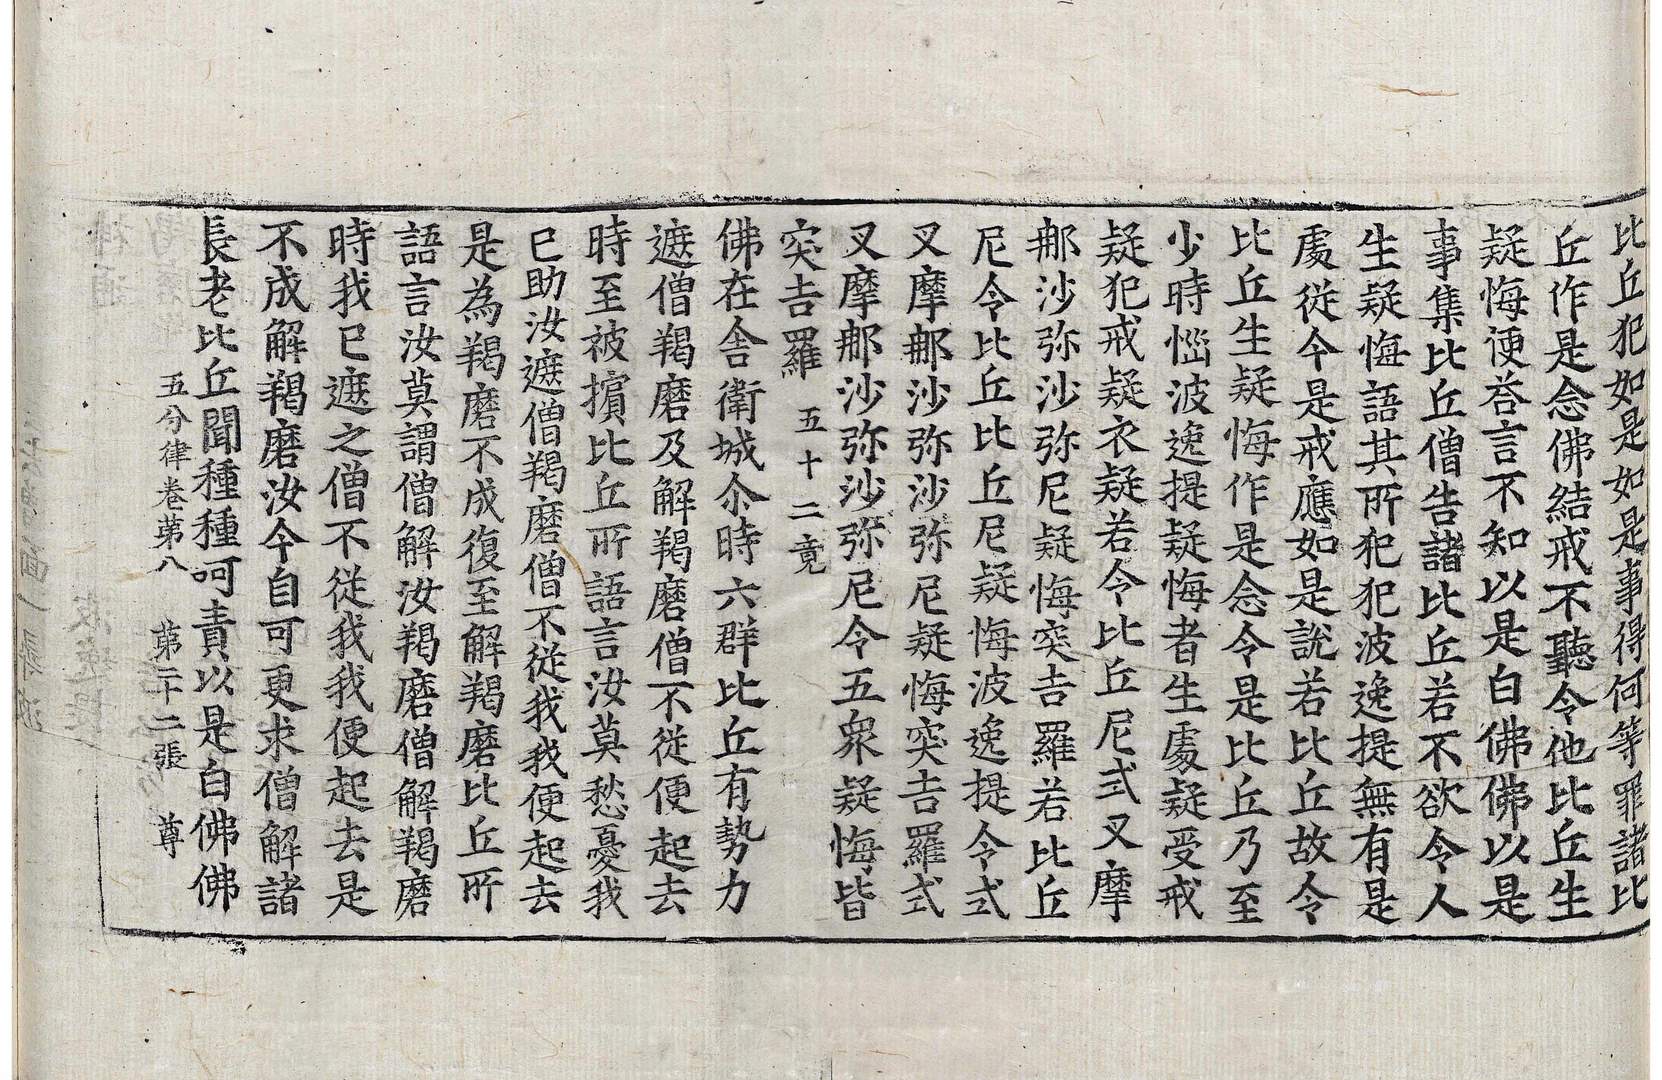 比丘犯如是如是事得何等罪諸比
丘作是念佛結戒不聽令他比丘生
疑悔便荅言不知以是白佛佛以是
事集比丘僧告諸比丘若不欲令人
生疑悔語其所犯犯波逸提無有是
處從今是戒應如是說若比丘故令
比丘生疑悔作是念令是比丘乃至
少時惱波逸提疑悔者生處疑受戒
疑犯戒疑衣疑若令比丘尼式叉摩
那沙弥沙弥尼疑悔突吉羅若比丘
尼令比丘比丘尼疑悔波逸提令式
叉摩那沙弥沙弥尼疑悔突吉羅式
叉摩那沙弥沙弥尼令五衆疑悔皆
突吉羅 五十二竟
佛在舍衛城尒時六群比丘有勢力
遮僧羯磨及解羯磨僧不從便起去
時至被擯比丘所語言汝莫愁憂我
已助汝遮僧羯磨僧不從我我便起去
是為羯磨不成復至解羯磨比丘所
語言汝莫謂僧解汝羯磨僧解羯磨
時我已遮之僧不從我我便起去是
不成解羯磨汝今自可更求僧解諸
長老比丘聞種種呵責以是白佛佛
五分律卷苐八 苐二十二張 尊